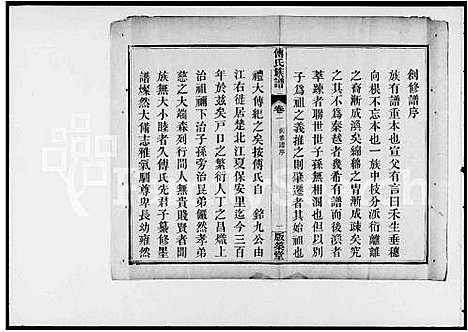 創修譜序
族有譜重本也宣父有言曰禾生垂穗
向根不忘本也一族中枝分派衍離離
之裔漸成溪矣綿綿之胄漸成疎矣究
之其不為秦越者幾希有譜而後渙者
萃踈者聯世世子孫無異同也但以別
子為祖之義推之則肇遷者其始祖
傅氏族譜
卷一
創修譜序
一
版築堂
禮大傅紀之矣按傅氏自 銘九公由
江右徙居楚北江夏保安里迄今三百
年於茲矣戶口之繁衍人丁之昌熾上
治祖禰下治子孫旁治昆弟儼然孝弟
慈之大端森列行間人無貴賤賢者紀
其大小賤者久傅氏先君子纂修墨
譜燦然大備志雅氣馴尊卑長幼雍然